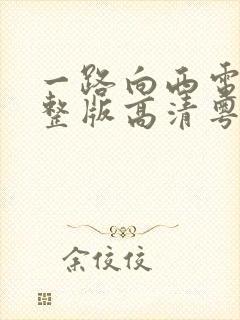 一路向西电
整版高清粤
余佼佼